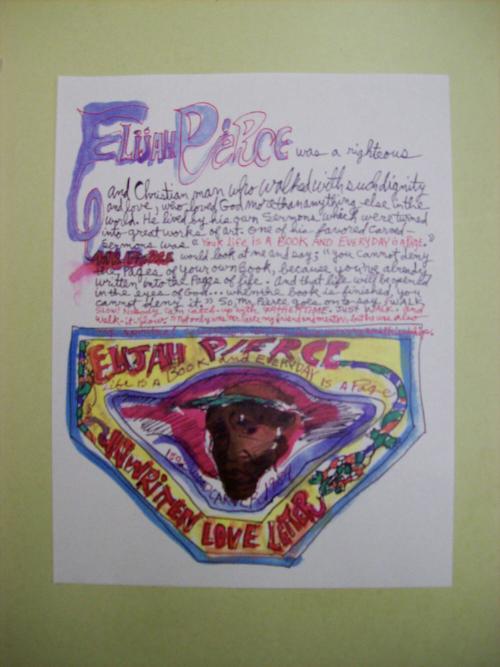 ELIJAH PiERCE was a righteous
and Christian man who walked with such dignity
and love, who loved God more than anything else in the
world. He lived by his own Sermons which were turned
into great works of art. One of his favored carved
Sermons was "YOUR LIFE IS A BOOK AND EVERYDAY is A PAGE."
MR. PIERCE would look at me and say; "you cannot deny
the Pages of your own book, because you've already
written into the Pages of life. - and that life will be opened
in the eyes of God... when the Book is finished, you
cannot deny it." So, Mr. Pierce goes on to say, "WALK
SLOW! Nobody can catch-up with FATHER TIME. JUST WALK - and
walk-it-slow."
ELIJAH PIERCE
Life IS A BOOK And EVERYDAY IS A Page
WOODCARVER
UNWRITEN LOVE LETER